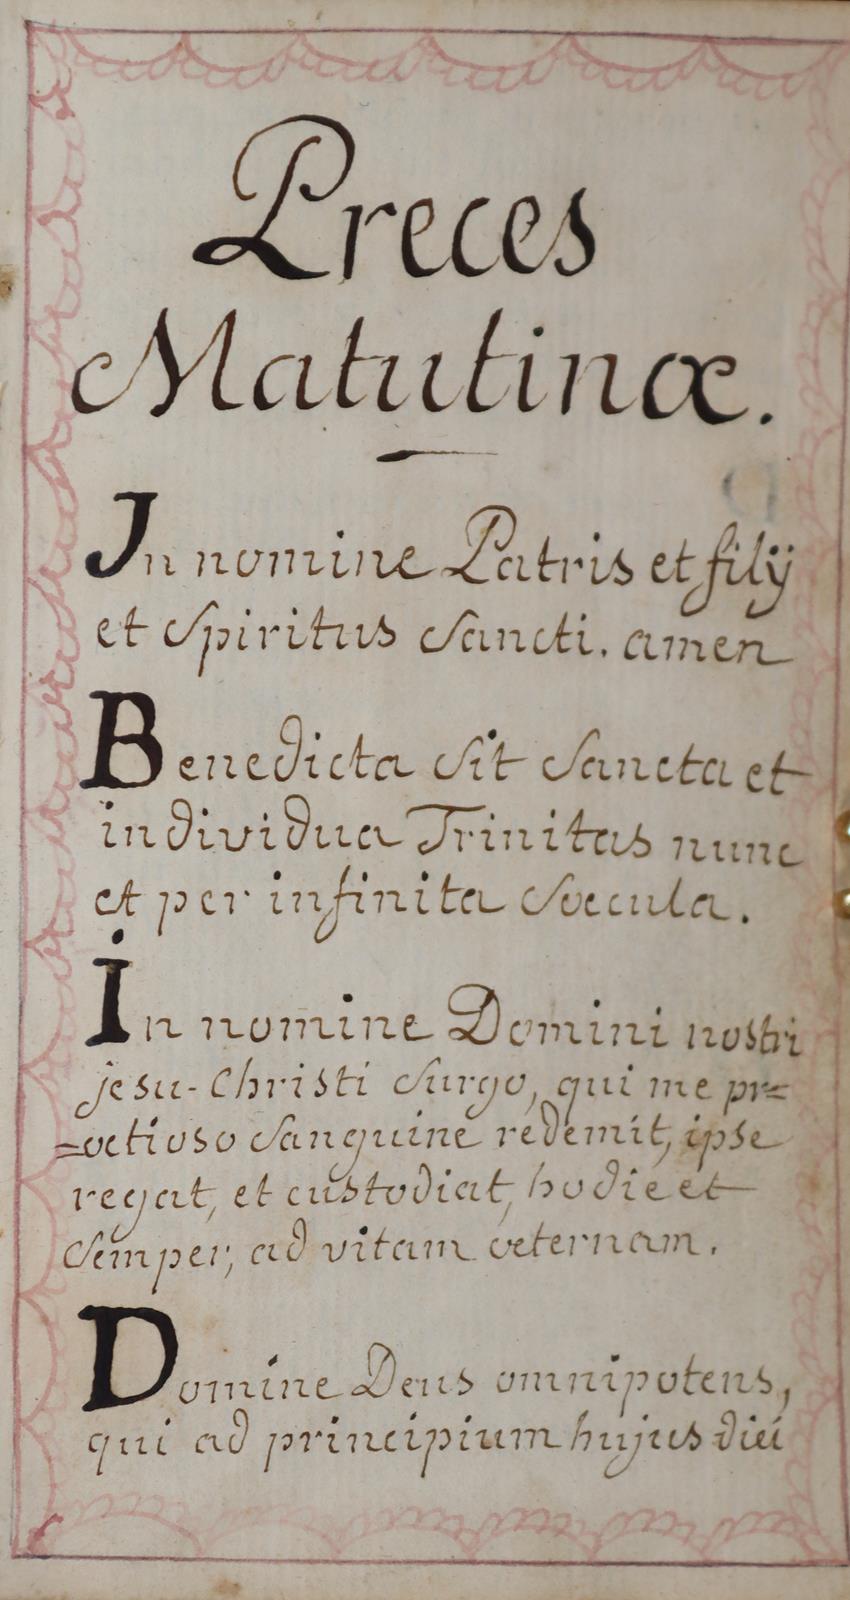 Preces
Matutinæ.
Jn nomine Patris et filÿ
et Spiritus Sancti. amen
Benedicta sit Sancta et
individua Trinitas nunc
et per infinita sœcula.
In nomine Domini nostri
jesu-Christi surgo, qui me pr=
=œtioso sanguine redemit, ipse
regat, et custodiat, hodie et
semper, ad vitam œternam.
Domine Deus omnipotens,
qui ad principium hujus diei